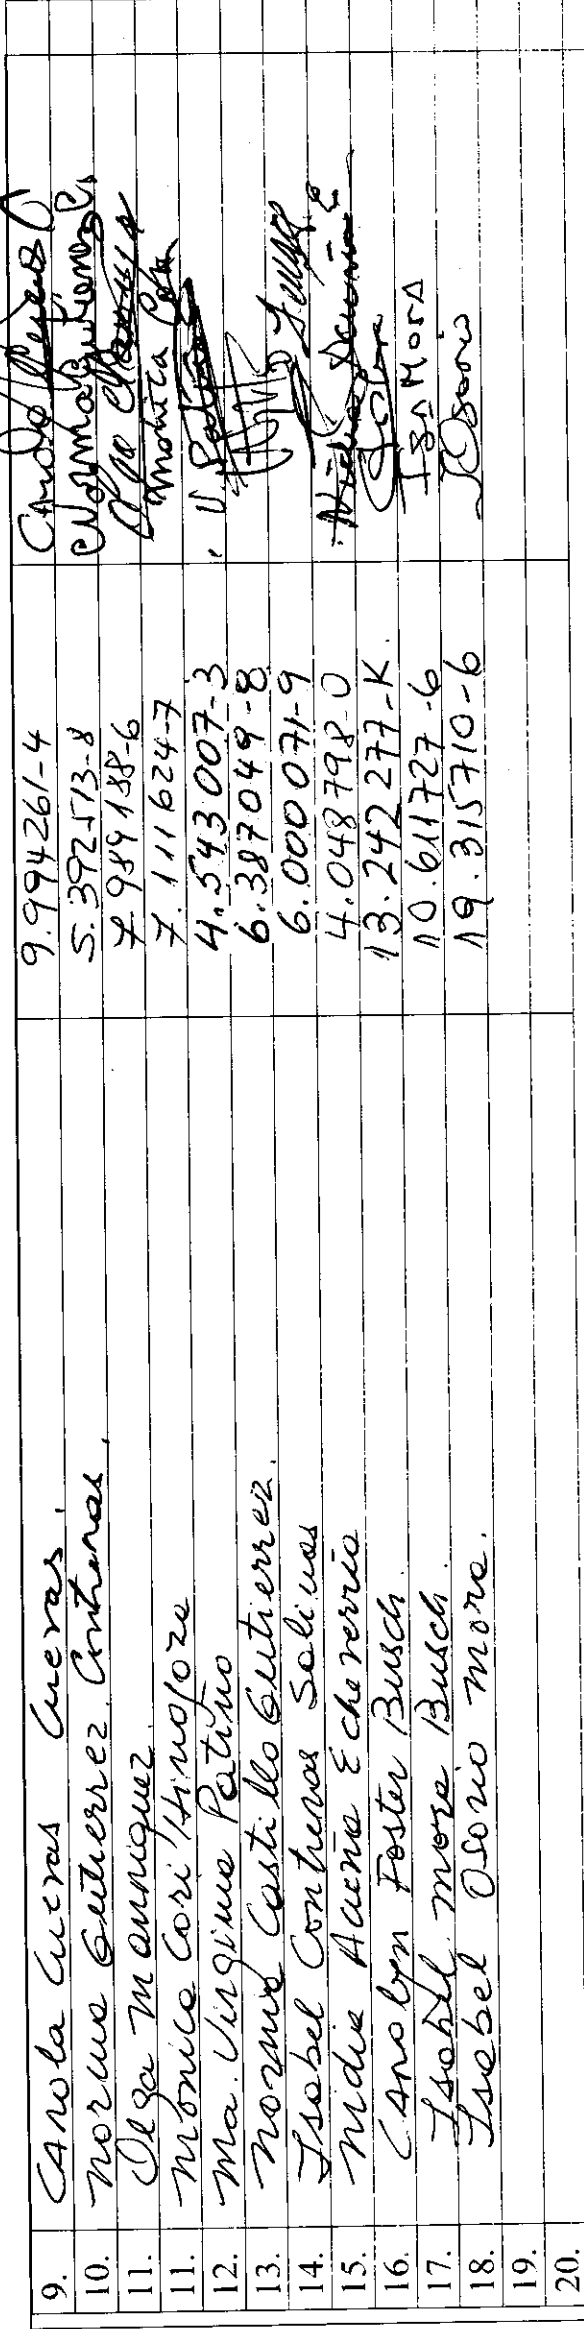 9. Carola Cuevas Cuevas. 9.994261-4
10. Norma Gutierrez Contreras. 5.392513-8
11. Olga Manriquez. 7.989188-6
11. Monica Cori Hinojoza 7.111624-7 Monica Cori
12. Ma. Virginia Patiño 4.543007-3 V. Patiño
13. Norma Castillo Gutierrez. 6.387049-8
14. Isabel Contreras Salinas 6.000071-9
15. Nidia Acuña Echeverria 4.048798-0
16. Carolyn Foster Busch. 13.242277-K.
17. Isabel Mora Busch. 10.611727-6 Isa Mora
18. Isabel Osorio Mora. 19.315710-6 IOsorio
19.
20.